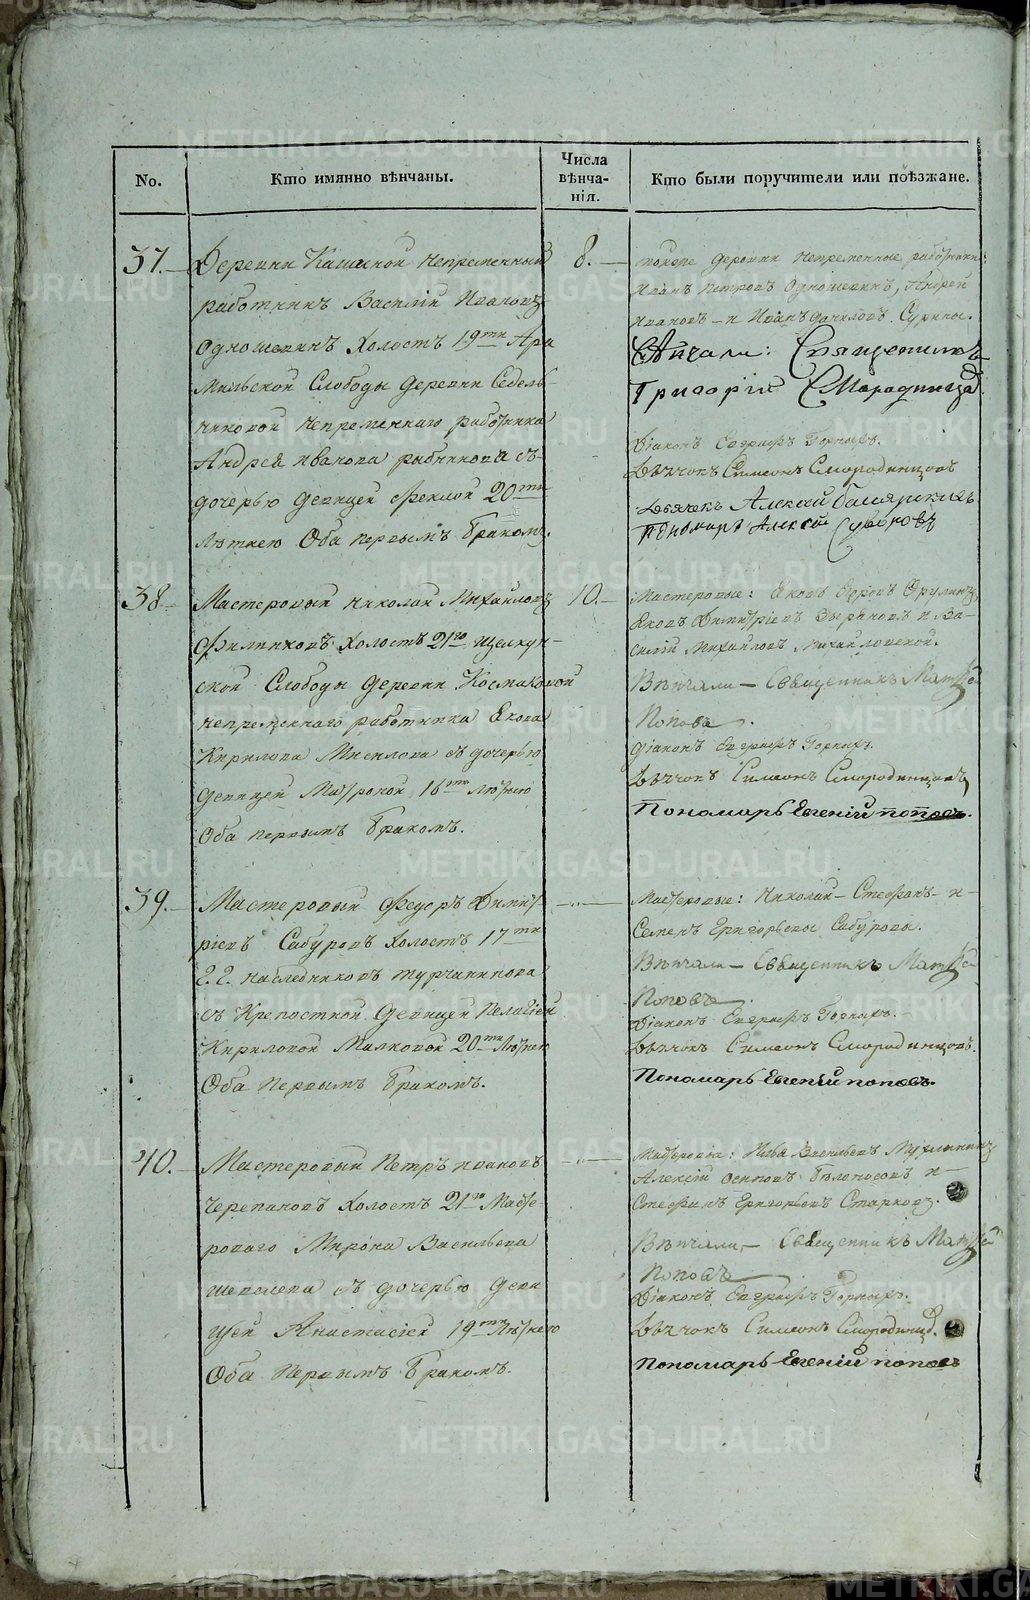 No.
Кто имянно вѣнчаны.
Числа
вѣнча-
нія.
Кто были поручители или поѣзжане.
37.
Деревни Кашиной непременный
работникъ Василій Ивановъ
Одношевинъ Холостъ 19ти Ара
Мильской Слободы деревни Седель-
никовой непременнаго работника
Андрея Иванова рыбникова съ
дочерью девицей Феклой 20ти
лѣтнею Оба первымъ бракомъ.
8.
деревни непременные работники:
Иванъ Петровъ Одношевинъ, Андрей
Ивановъ и Иванъ Даниловъ Сурины.
Вѣнчали: Священникъ
Григорій Смородинцов
Діаконъ Евграфъ
Дьячокъ Симеонъ Смородинцовъ
Дьячекъ Алексій
Пономарь Алексій Суворовъ
38
Мастеровый Николай Михайловъ
Филиповъ Холостъ 21го Щелкун-
ской Слободы деревни Космаковой
непременнаго работника Якова
Кирилова съ дочерью
девицей Матроной 16ти лѣтнею
Оба первымъ бракомъ.
10.
Мастеровые: Яковъ
Яковъ Димитріевъ и Ва-
силій Михайловъ
Вѣнчали – Священникъ Матфей
Поповъ.
Діаконъ Евграфъ
Дьячокъ Симеонъ Смородинцовъ
Пономарь Евгеній поповъ.
39.
Мастеровый Федоръ Димит
ріевъ Сабуровъ Холостъ 17ти
г.г. наследниковъ турчанинова
съ Крепостной девицей Пелагіей
Кириловой Малковой 20ти лѣтнею
Оба Первымъ бракомъ.
Мастеровые: Николай Стефанъ и
Семенъ Григорьевы Сабуровы.
Вѣнчали – Священникъ Матфей
Поповъ.
Діаконъ Евграфъ
Дьячокъ Симеонъ Смородинцовъ.
Пономарь Евгеній поповъ.
40.
Мастеровый Петръ ивановъ
Черепановъ Холостъ 21го Масте
роваго Мирона Васильева
Шепелева съ дочерью Деви
цей Анастасіей 19ти лѣтнею
Оба Первымъ бракомъ.
Мастеровые: Васильевъ
Алексій осиповъ Белоносовъ и
Стефанъ Григорьевъ Старковъ.
Вѣнчали – Священникъ Матфей
Поповъ
Діаконъ Евграфъ
Дьячокъ Симеонъ Смородинцов.
Пономарь Евгеній поповъ
METRIKI.GASO-URAL.RU